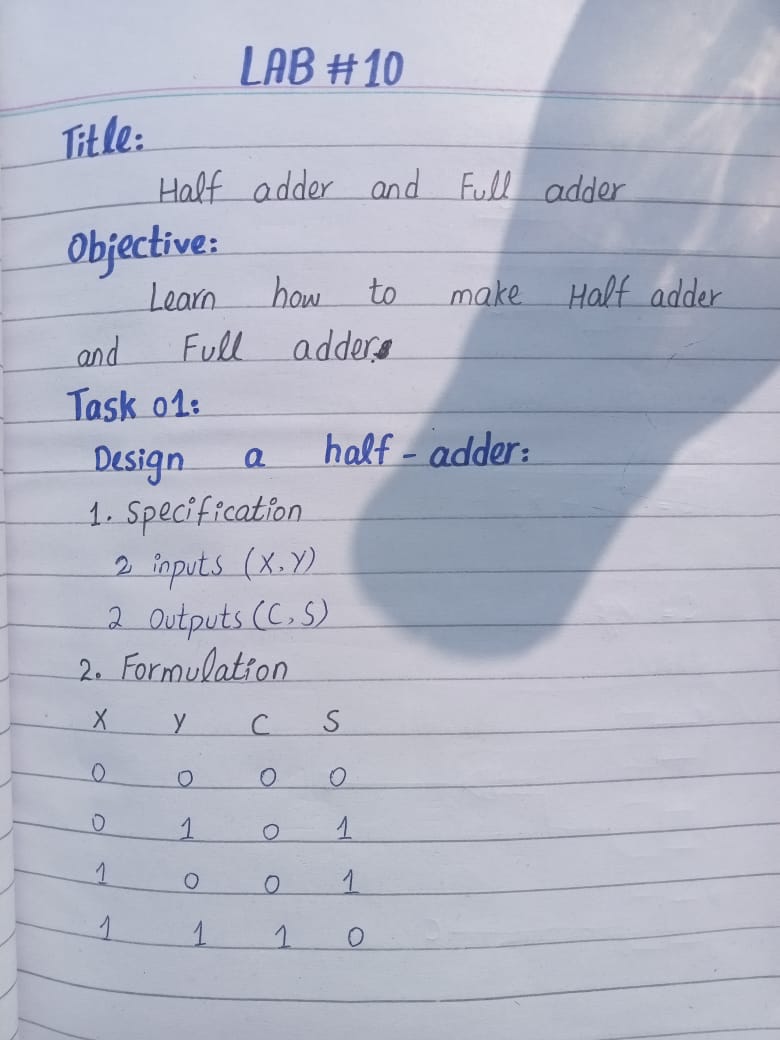 LAB #10
Title:
Half adder and Full adder
Objective:
Learn how to make Half adder
and Full adder.
Task 01:
Design a half-adder:
1. Specification
2 inputs (X,Y)
2 Outputs (C,S)
2. Formulation
X Y C S
0 0 0 0
0 1 0 1
1 0 0 1
1 1 1 0